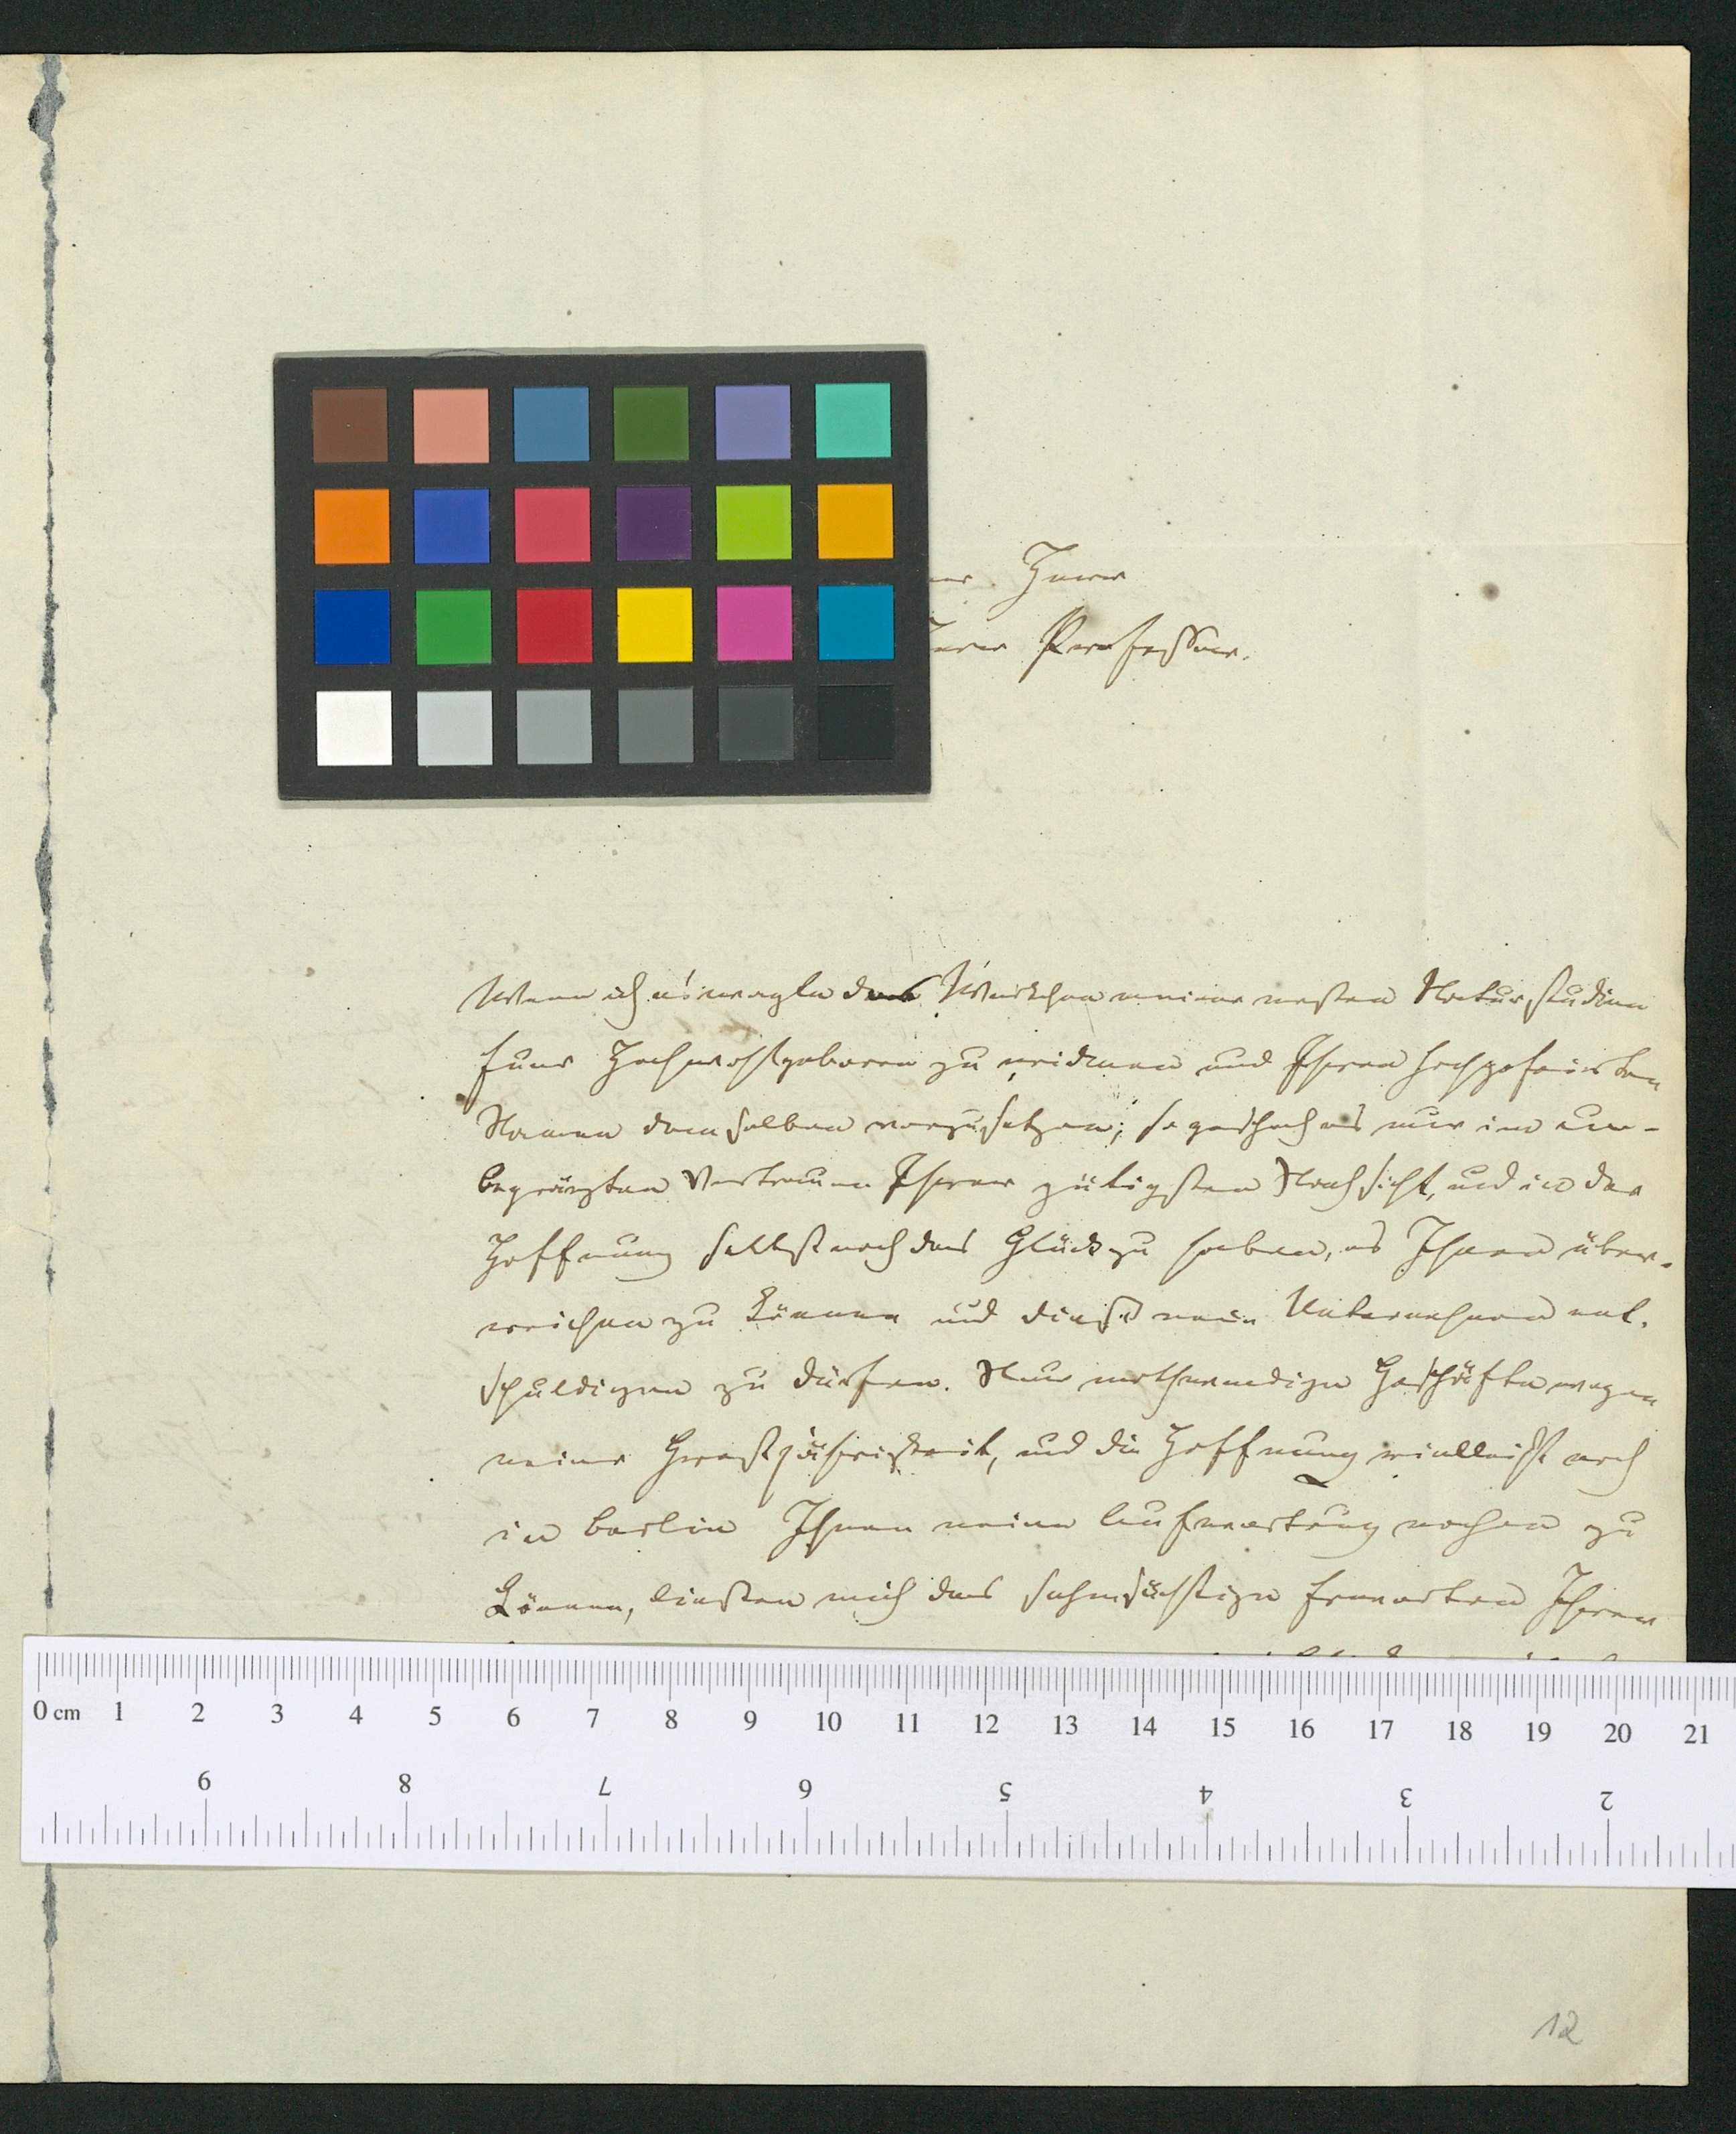 Herr
Herr Professor.
Wenn ich es wagte das Werkchen meiner ersten Naturstudien
Euer Hochwohlgeboren zu widmen und Ihren hochgefeierten
Namen demselben vorzusetzen; so geschah es nur im un-
begränzten Vertrauen Ihrer gütigsten Nachsicht, und in der
Hoffnung selbst noch das Glück zu haben, es Ihnen über-
reichen zu können und dieß mein Unternehmen ent-
schuldigen zu dürfen. Nur nothwendige Geschäfte wegen
meiner Großjährigkeit, und die Hoffnung vielleicht noch
in Berlin Ihnen meine Aufwartung machen zu
können, ließen mich das sehnsüchtige Erwarten Ihrer
0 cm 1 2 3 4 5 6 7 8 9 10 11 12 13 14 15 16 17 18 19 20 21
9 8 7 6 5 4 3 2
12